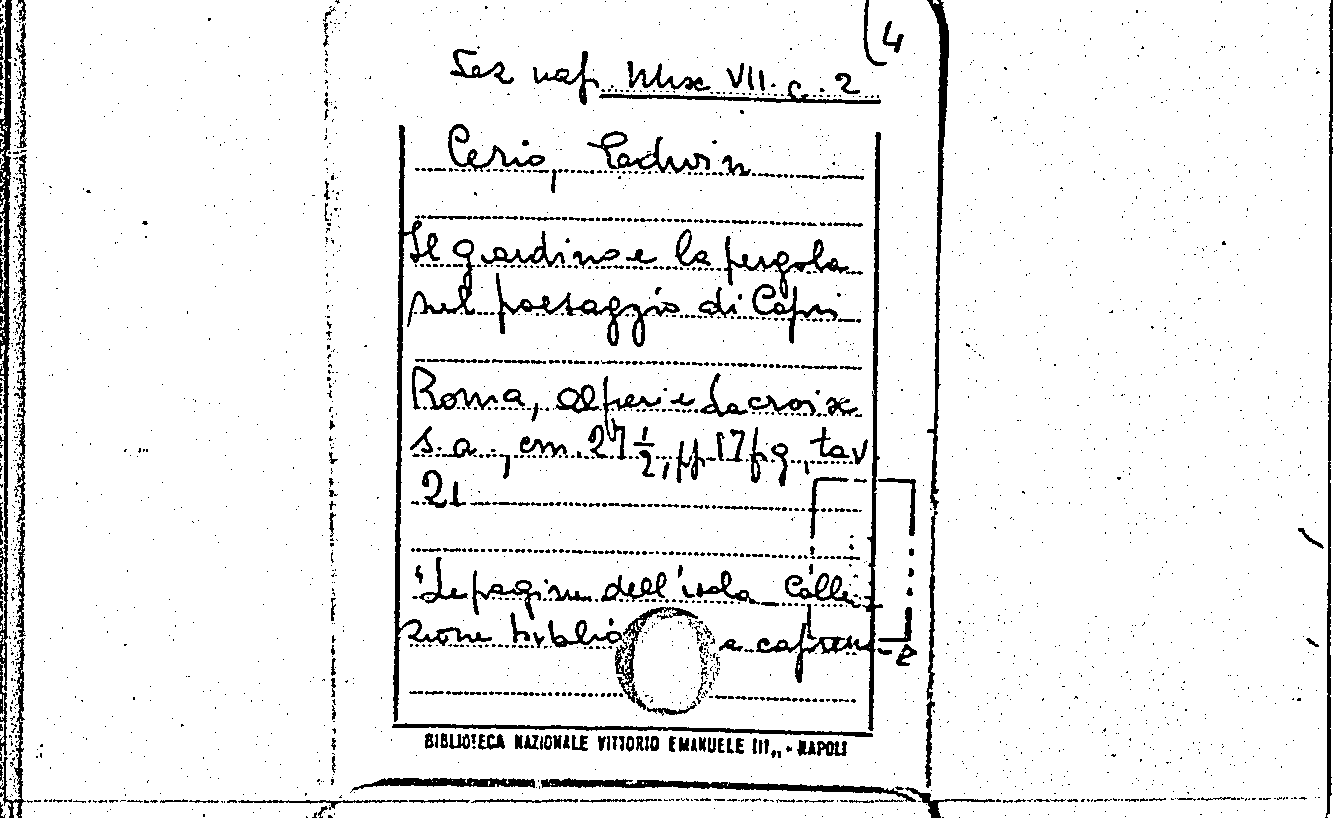 4
Sez nap. Misc VII. c. 2
Cerio, Edwin
Il giardino e la pergola
nel paesaggio di Capri
Roma, Alfieri e Lacroix
s.a., cm. 27 1/2, pp 17 fig, tav
21
"Le pagine dell'isola Colle-
zione biblio a caprense
BIBLIOTECA NAZIONALE VITTORIO EMANUELE III,, - NAPOLI